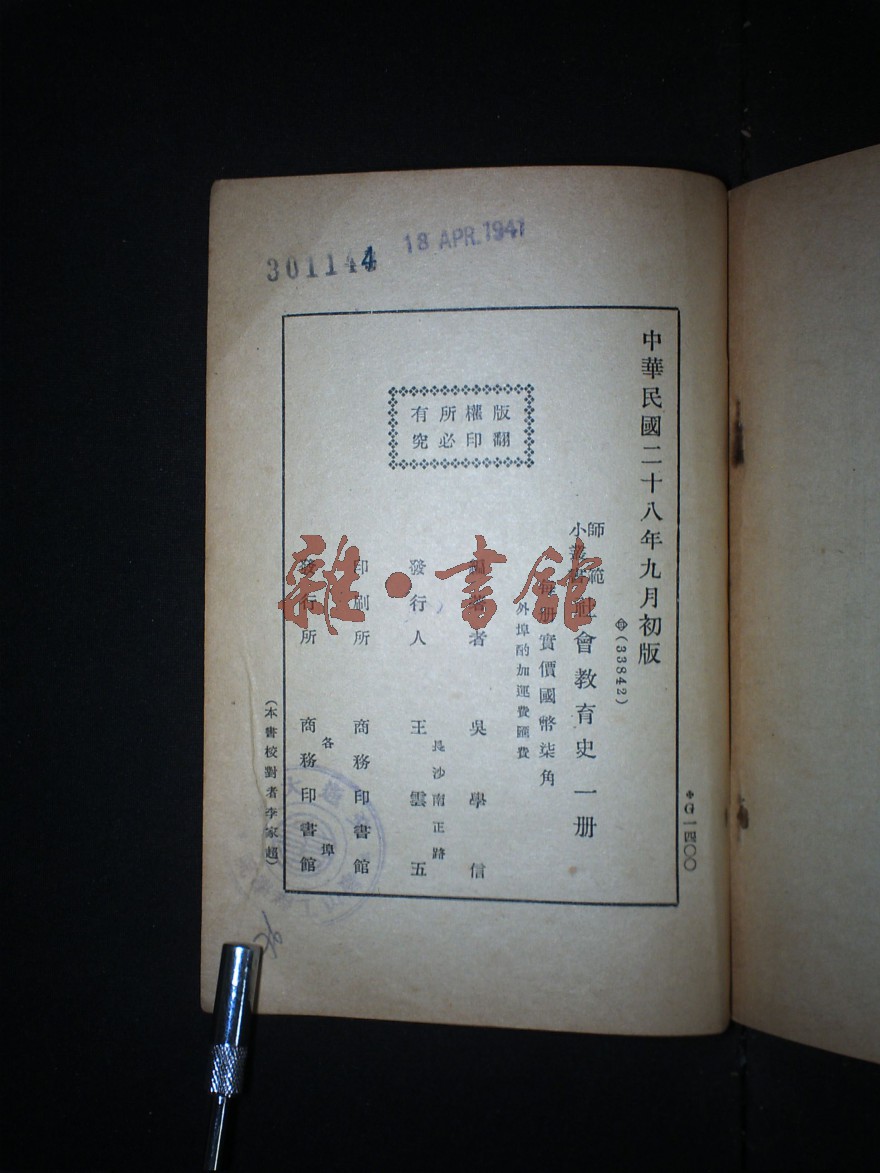 301144
18 APR. 1941
中華民國二十八年九月初版
(33842)
師範小叢書
社會教育史一册
每册實價國幣柒角
外埠酌加運費匯費
版權所有
翻印必究
編著者 吳學信
長沙南正路
發行人 王雲五
印刷所 商務印書館
各埠
發行所 商務印書館
(本書校對者李家超)
G一四〇〇
雜·書館